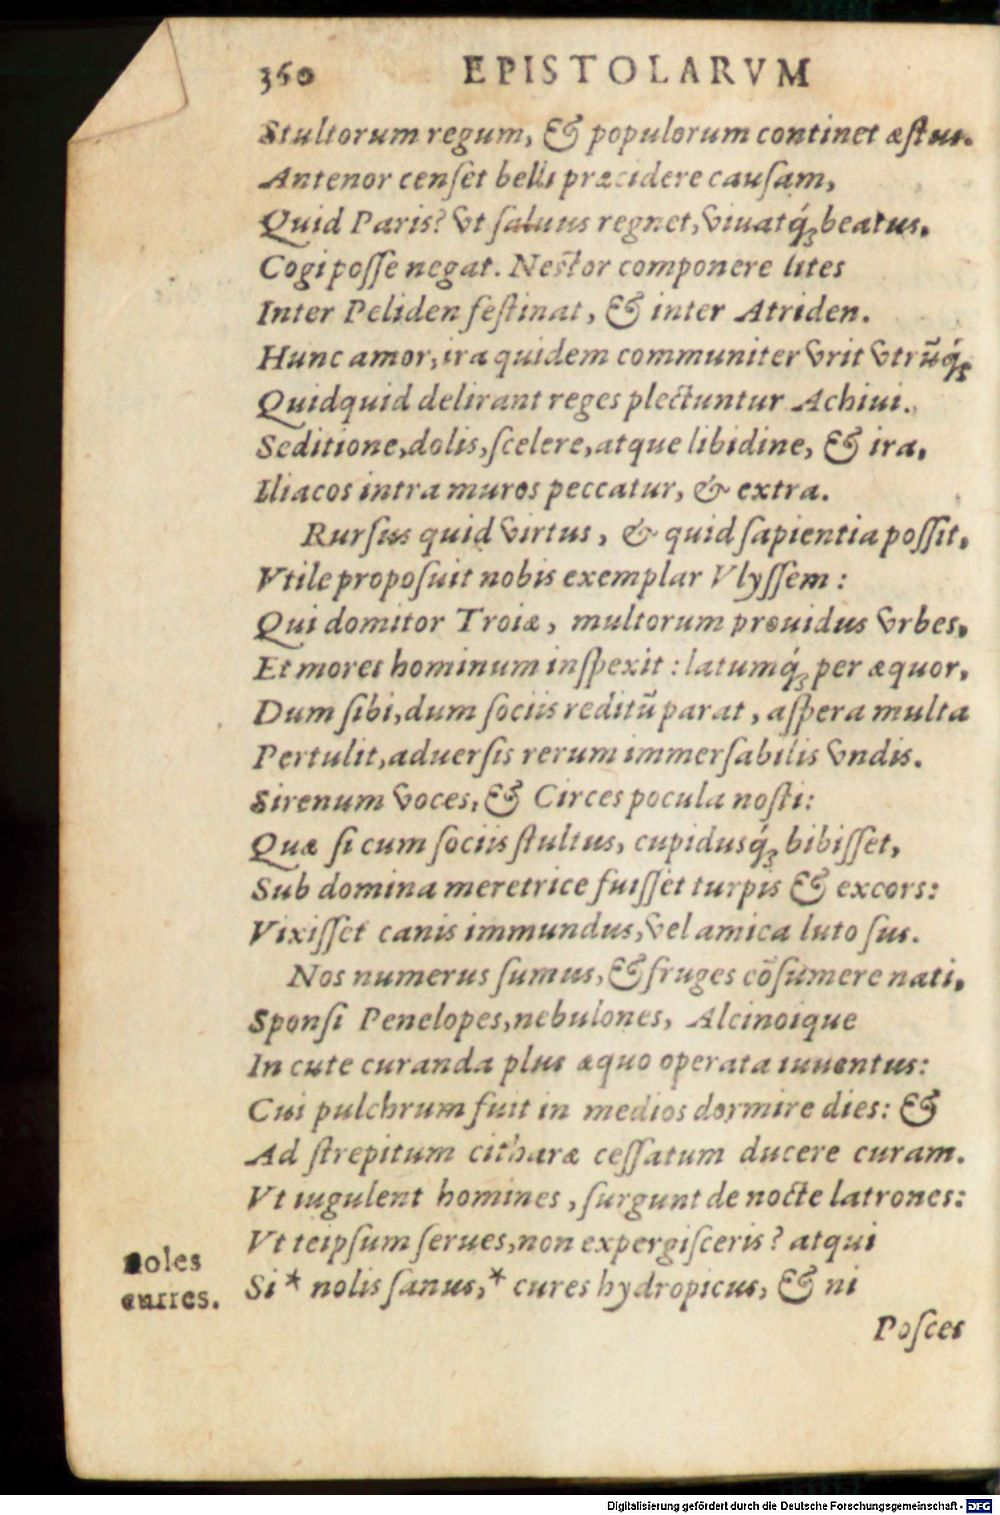 360 EPISTOLARVM
Stultorum regum, & populorum continet æstus.
Antenor censet belli præcidere causam,
Quid Paris? vt saluus regnet, viuatq́; beatus,
Cogi posse negat. Nestor componere lites
Inter Peliden festinat, & inter Atriden.
Hunc amor, ira quidem communiter vrit vtrũq́;
Quidquid delirant reges plectuntur Achiui.
Seditione, dolis, scelere, atque libidine, & ira,
Iliacos intra muros peccatur, & extra.
Rursus quid virtus, & quid sapientia possit,
Vtile proposuit nobis exemplar Vlyssem:
Qui domitor Troiæ, multorum prouidus vrbes,
Et mores hominum inspexit: latumq́; per æquor,
Dum sibi, dum sociis reditũ parat, aspera multa
Pertulit, aduersis rerum immersabilis vndis.
Sirenum voces, & Circes pocula nosti:
Quæ si cum sociis stultus, cupidusq́; bibisset,
Sub domina meretrice fuisset turpis & excors:
Vixisset canis immundus, vel amica luto sus.
Nos numerus sumus, & fruges cõsumere nati,
Sponsi Penelopes, nebulones, Alcinoique
In cute curanda plus æquo operata iuuentus:
Cui pulchrum fuit in medios dormire dies: &
Ad strepitum citharæ cessatum ducere curam.
Vt iugulent homines, surgunt de nocte latrones:
Vt teipsum serues, non expergisceris? atqui
noles
Si * nolis sanus, * cures hydropicus, & ni
curres.
Posces
Digitalisierung gefördert durch die Deutsche Forschungsgemeinschaft - DFG